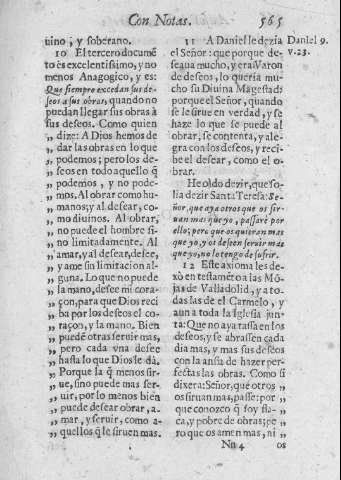 Con Notas. 565
uino, y soberano.
10 El tercero documẽ
to és excelentisimo, y no
menos Anagogico, y es:
Que siempre excedan sus de-
seos a sus obras, quando no
puedan llegar sus obras à
sus deseos. Como quien
„ dize: A Dios hemos de
„ dar las obras en lo que
„ podemos; pero los de-
„ seos en todo aquello q̃
„ podemos, y no pode-
„ mos. Al obrar como hu-
„ manos; y al desear, co-
„ mo diuinos. Al obrar,
„ no puede el hombre si-
„ no limitadamente. Al
„ amar, y al desear, desee,
„ y ame sin limitacion al-
„ guna. Lo que no puede
„ la mano, desee mi cora-
„ çon, para que Dios reci
„ ba por los deseos el co-
„ raçon, y la mano. Bien
„ puedẽ otras seruir mas,
„ pero cada vna desee
„ hasta lo que Dios le dà.
„ Porque la q̃ menos sir-
„ ue, sino puede mas ser-
„ uir, por lo menos bien
„ puede desear obrar, a-
„ mar, y seruir, como a-
„ quellos q̃ le siruen mas.
11 A Daniel le dezia
el Señor: que porque de-
seaua mucho, y era Varon
de deseos, lo queria mu-
cho su Diuina Magestad;
porque el Señor, quando
se le sirue en verdad, y se
haze lo que se puede al
obrar, se contenta, y ale-
gra con los deseos, y reci-
be el desear, como el o-
brar.
He oìdo dezir, que so-
lia dezir Santa Teresa: Se-
ñor, que aya otros que os sir-
uan mas que yo, passarè por
ello; pero que os quieran mas
que yo, y os deseen seruir mas
que yo, no lo tengo de sufrir.
12 Este axioma les de-
xò en testamẽto a las Mõ-
jas de Valladolid, y a to-
das las de el Carmelo, y
aun a toda la Iglesia jun-
ta: Que no aya tassa en los
deseos, y se abrassen cada
dia mas, y mas sus deseos
con la ansia de hazer per-
fectas las obras. Como si
dixera: Señor, què otros „
os siruan mas, passe: por „
que conozco q̃ soy fla- „
ca, y pobre de obras; pe „
ro que os amen mas, ni „
Nn 4 os
Daniel 9.
v. 23.